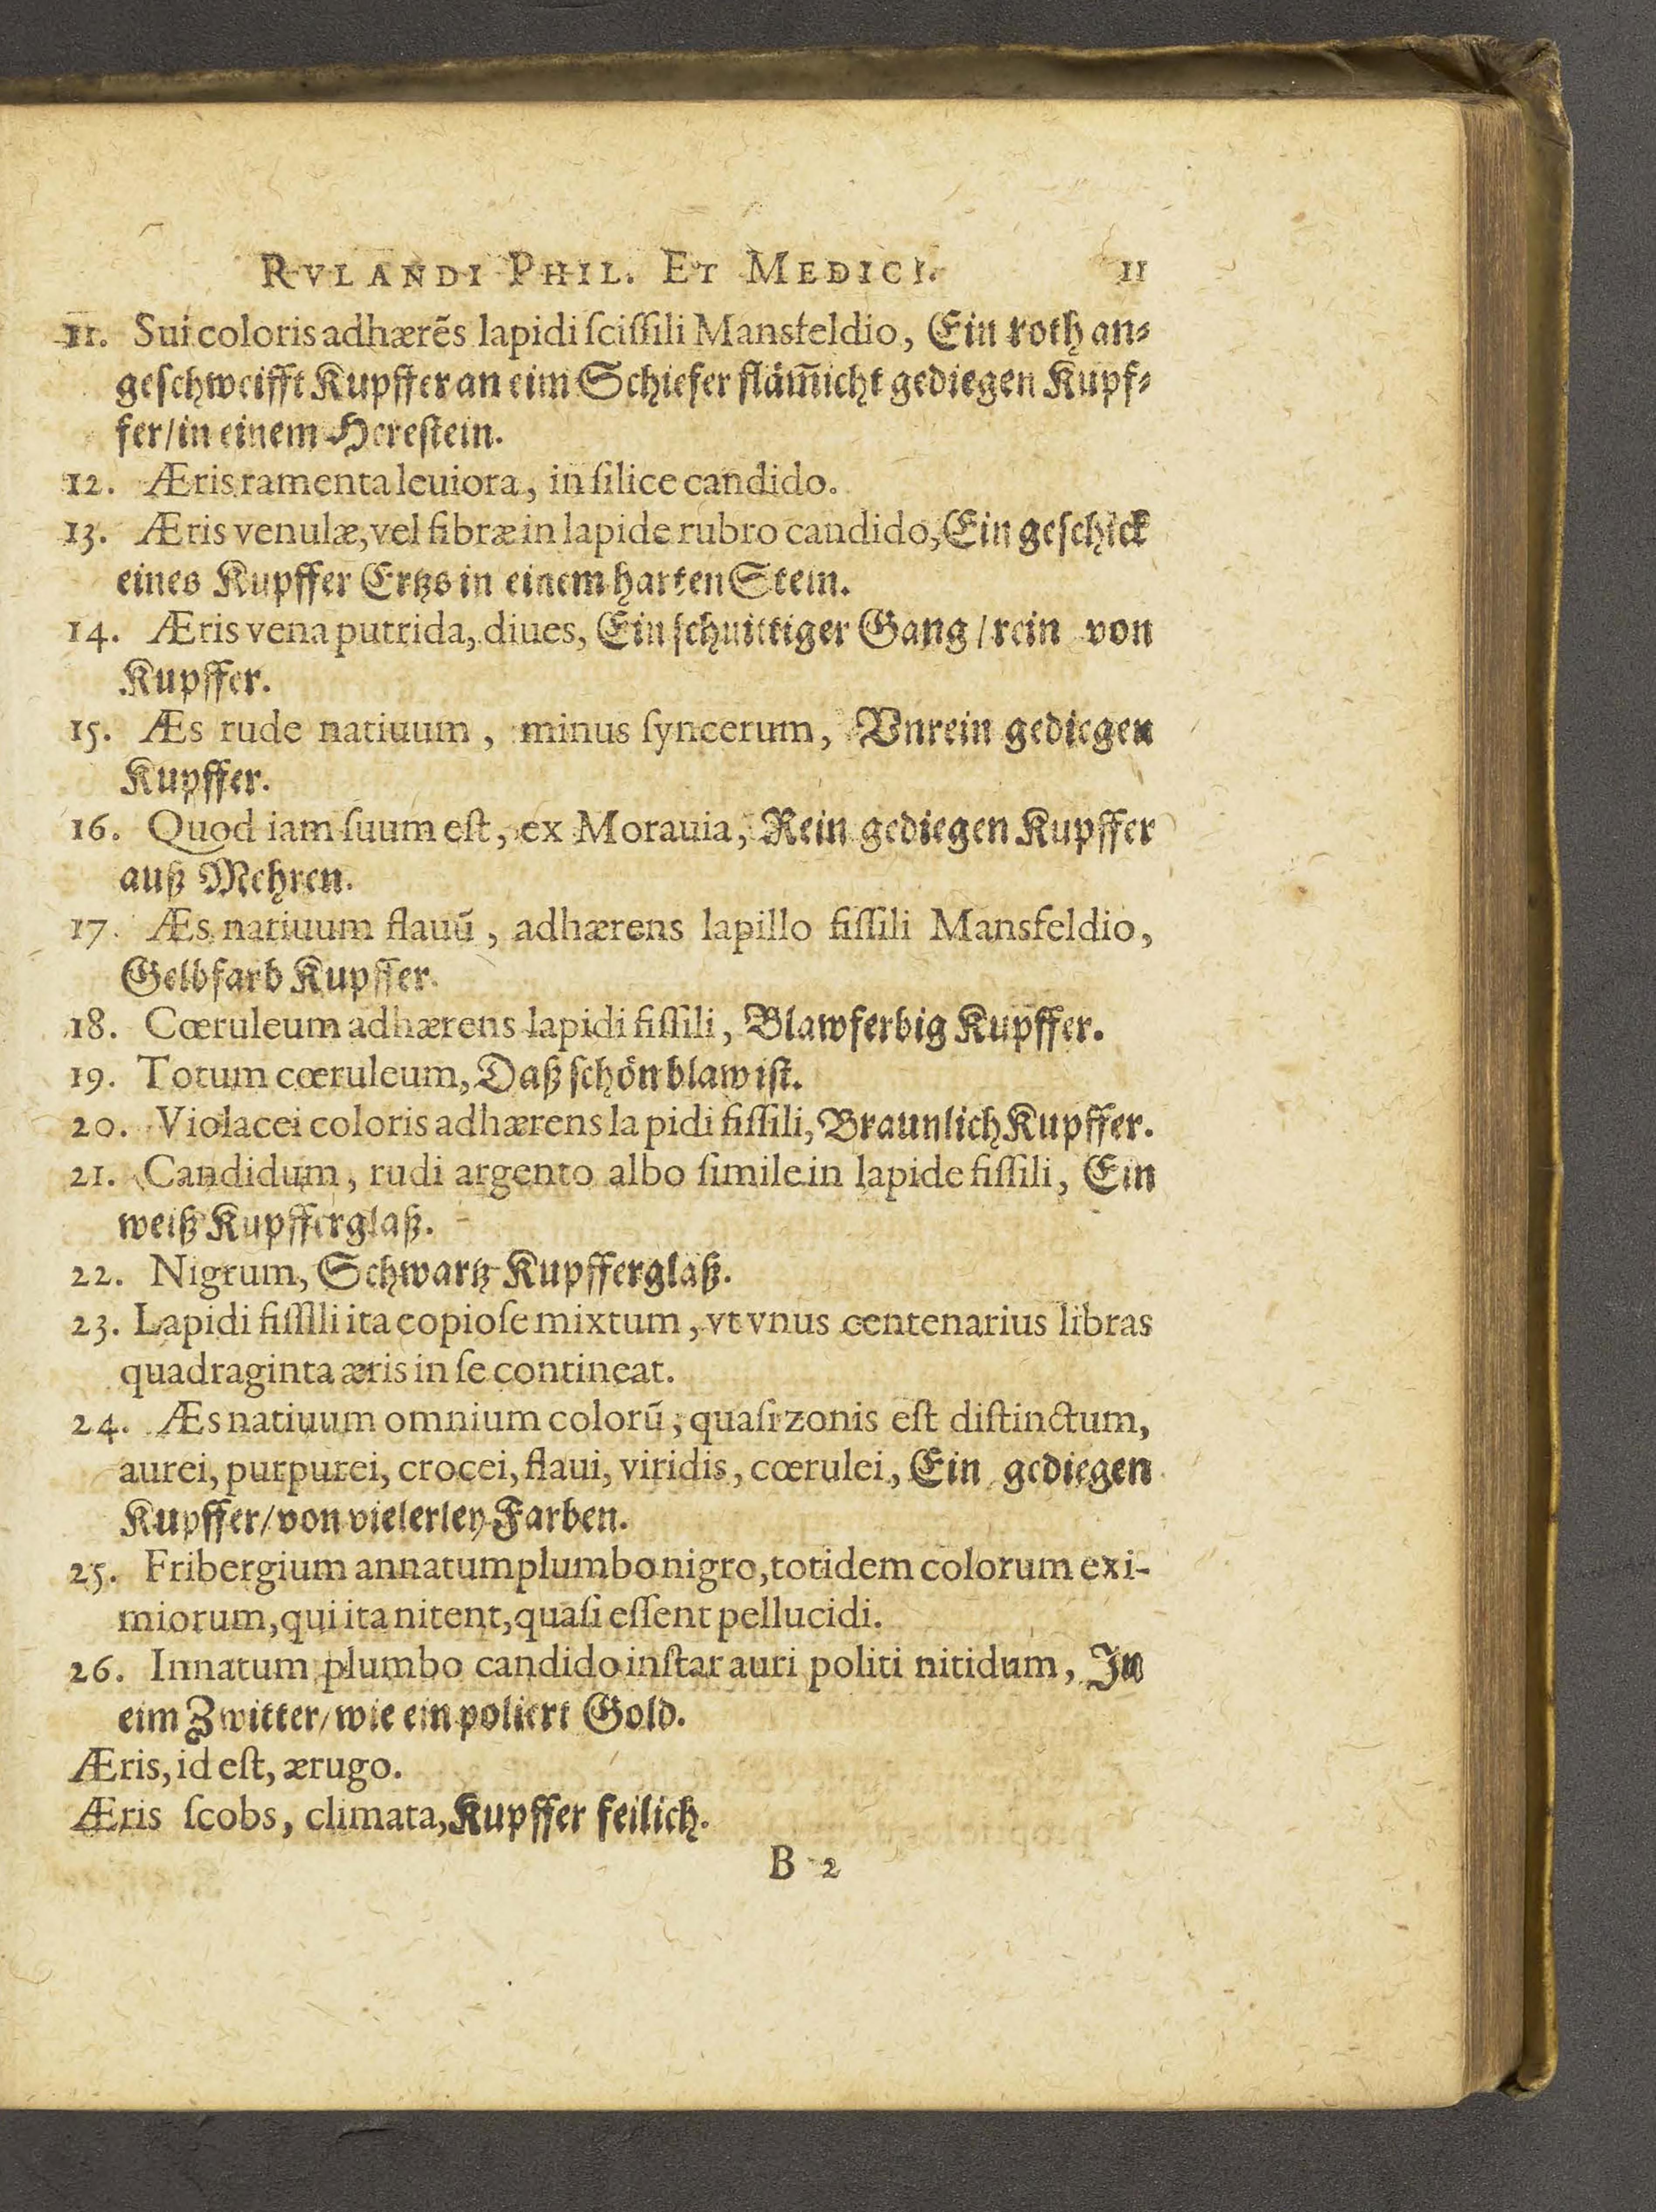 RVLANDI PHIL. ET MEDICI. 11
11. Sui coloris adhærẽs lapidi ſciſſili Mansfeldio, Ein roth an⸗
geſchweifft Kupffer an eim Schiefer flãm̃icht gediegen Kupf⸗
fer/in einem Hereſtein.
12. Æris ramenta leuiora, in ſilice candido.
13. Æris venulæ, vel fibræ in lapide rubro candido, Ein geſchick
eines Kupffer Ertzs in einem harten Stein.
14. Æris vena putrida, diues, Ein ſchnittiger Gang / rein von
Kupffer.
15. Æs rude natiuum, minus ſyncerum, Vnrein gediegen
Kupffer.
16. Quod iam ſuum eſt, ex Morauia, Rein gediegen Kupffer
auß Mehren.
17. Æs natiuum flauũ, adhærens lapillo fiſſili Mansfeldio,
Gelbfarb Kupffer.
18. Cœruleum adhærens lapidi fiſſili, Blawferbig Kupffer.
19. Totum cœruleum, Daß ſchön blaw iſt.
20. Violacei coloris adhærens la pidi fiſſili, Braunlich Kupffer.
21. Candidum, rudi argento albo ſimile in lapide fiſſili, Ein
weiß Kupfferglaß.
22. Nigrum, Schwartz Kupfferglaß.
23. Lapidi fiſſlli ita copioſe mixtum, vt vnus centenarius libras
quadraginta æris in ſe contineat.
24. Æs natiuum omnium colorũ, quaſi zonis eſt diſtinctum,
aurei, purpurei, crocei, flaui, viridis, cœrulei, Ein gediegen
Kupffer/von vielerley Farben.
25. Fribergium annatum plumbo nigro, totidem colorum exi-
miorum, qui ita nitent, quaſi eſſent pellucidi.
26. Innatum plumbo candido inſtar auri politi nitidum, In
eim Zwitter/wie ein poliert Gold.
Æris, id eſt, ærugo.
Æris ſcobs, climata, Kupffer feilich.
B 2